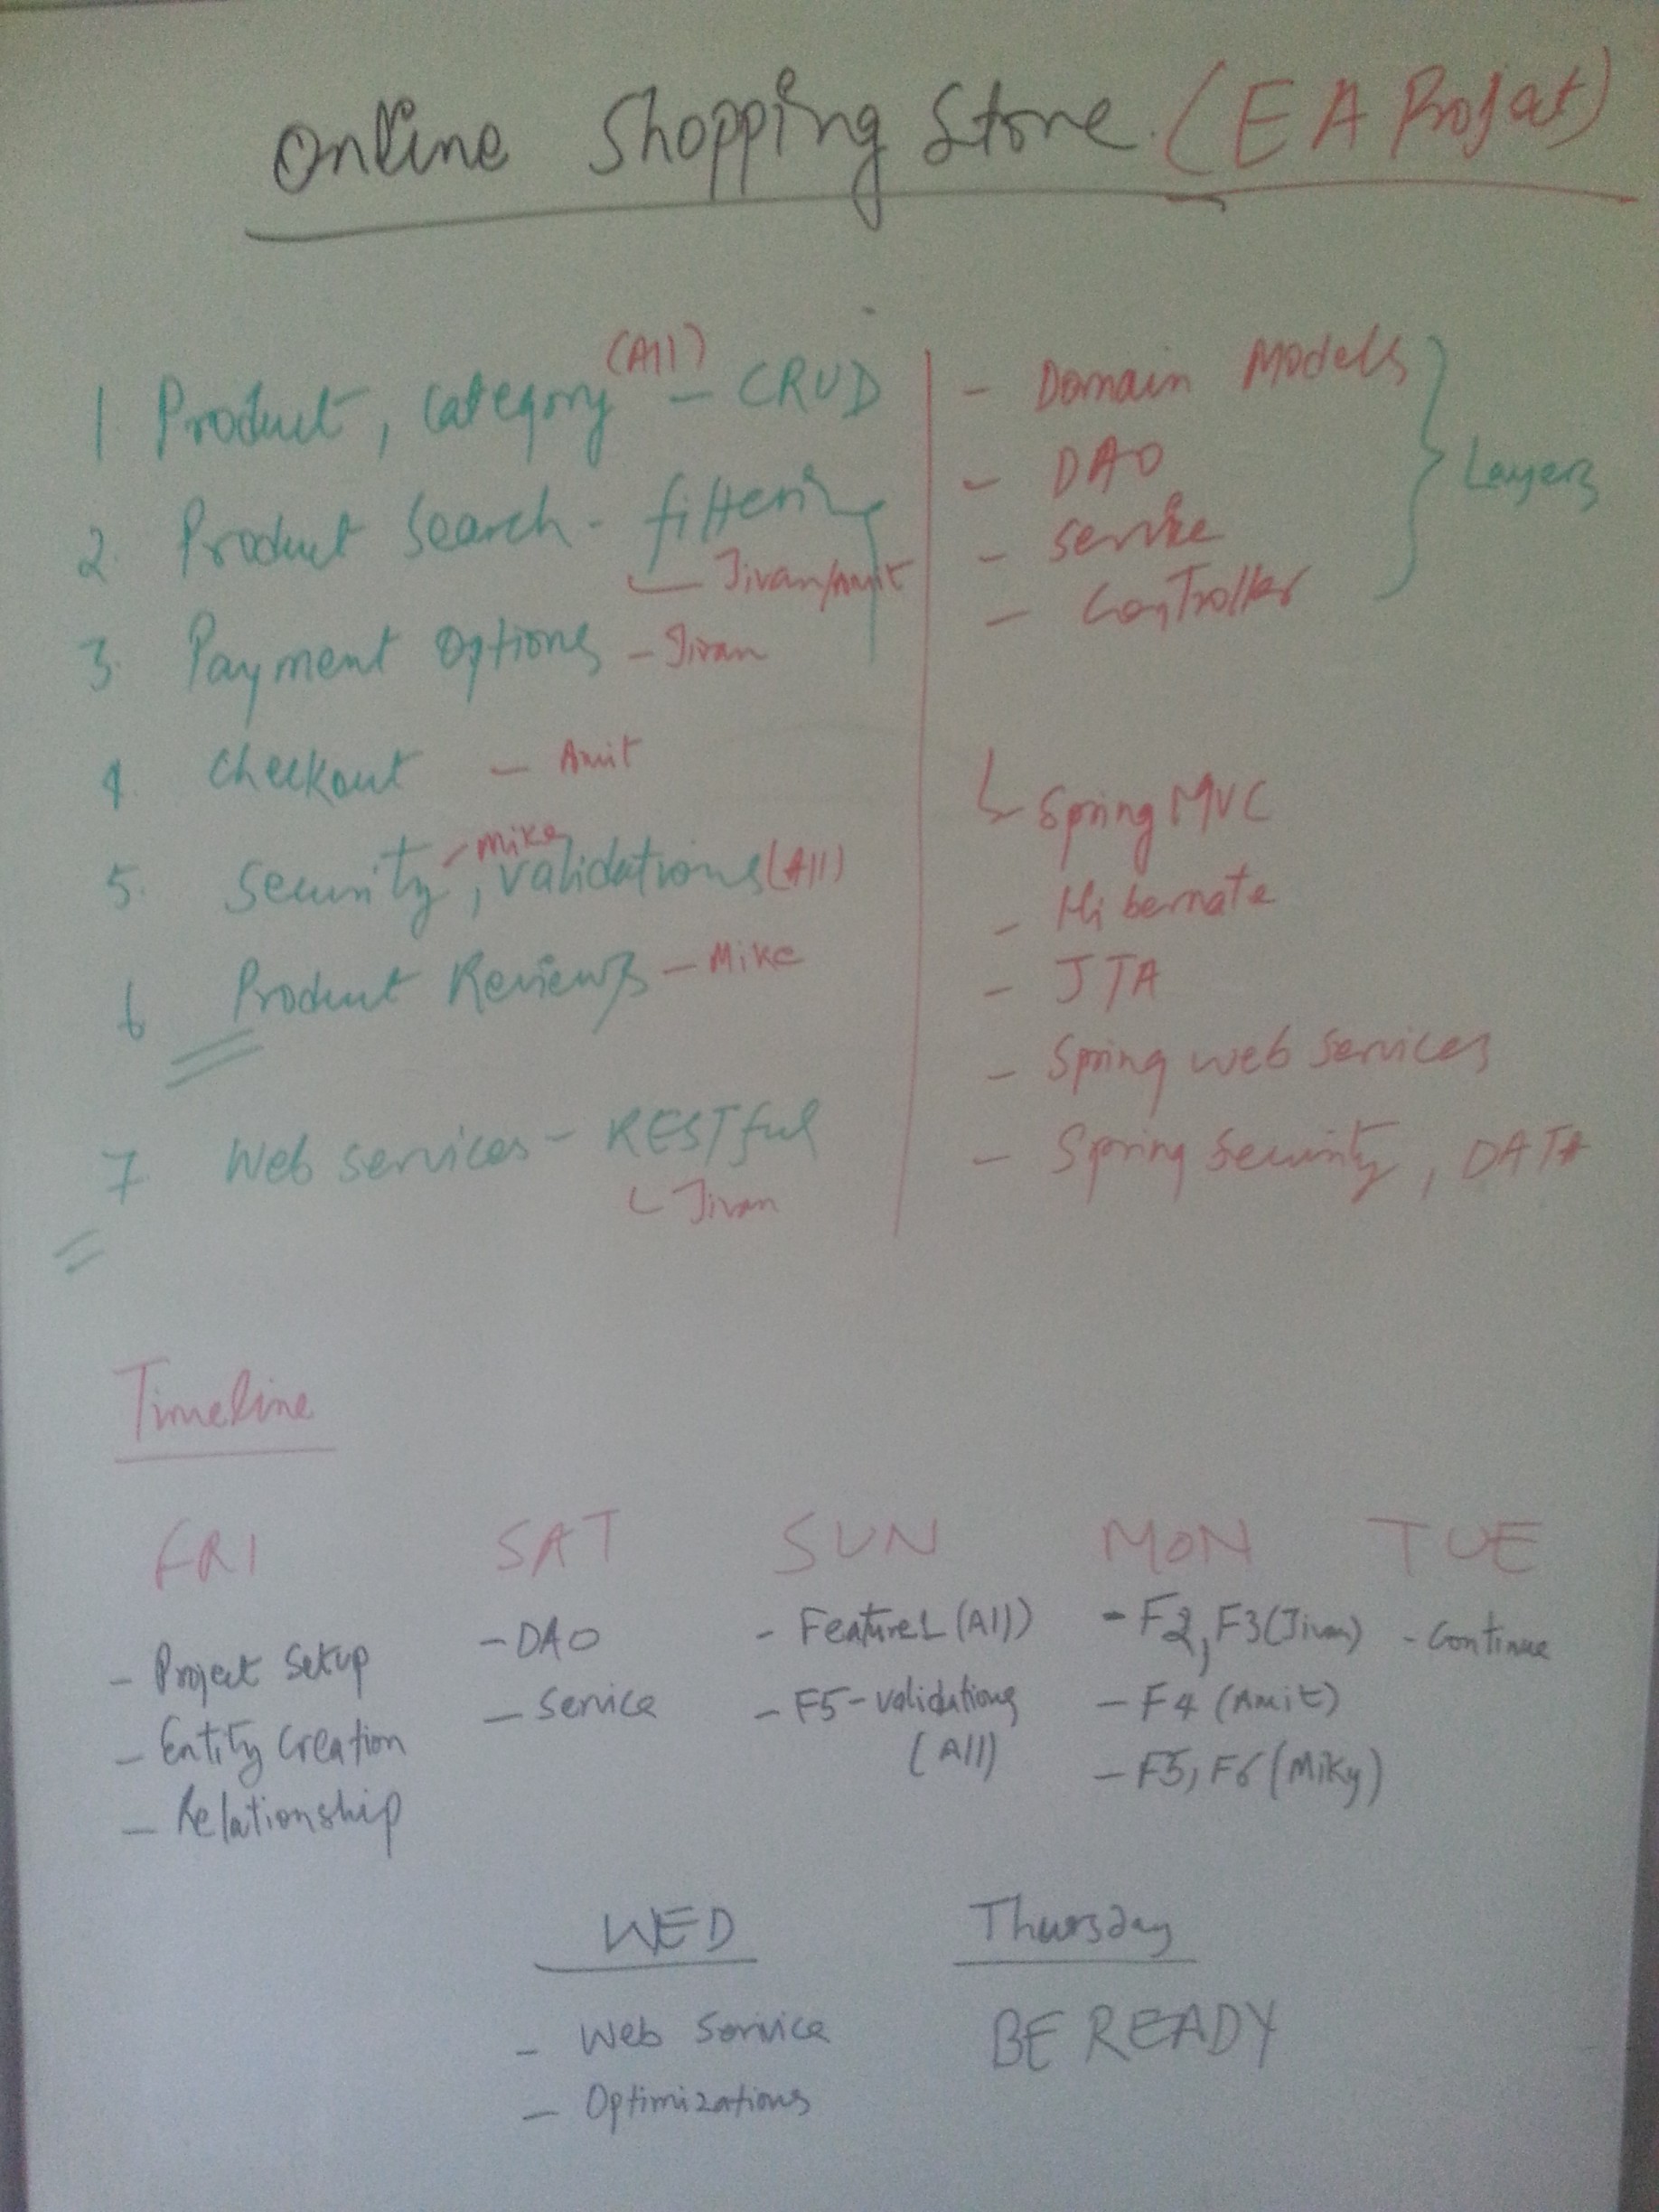 Online Shopping Store (EA Project)
1 Product, Category (All) - CRUD
2. Product Search - filtering
Jivan/Amit
3. Payment Options - Jivan
4. Checkout - Amit
5. Security - Mike, validations (All)
6 Product Reviews - Mike
7 Web services - RESTful
Jivan
- Domain Models
- DAO
- Service
- Controller
Layers
Spring MVC
- Hibernate
- JTA
- Spring web services
- Spring Security, DATA
Timeline
FRI
- Project Setup
- Entity Creation
- Relationship
SAT
- DAO
- Service
SUN
- Feature1 (All)
- F5-validations
(All)
MON
- F2, F3 (Jivan)
- F4 (Amit)
- F5, F6 (Miky)
TUE
- Continue
WED
- Web Service
- Optimizations
Thursday
BE READY